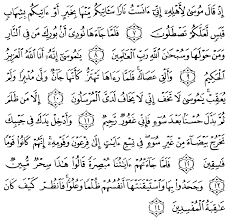 إِذْ قَالَ مُوسَىٰ لِأَهْلِهِۦٓ إِنِّىٓ ءَانَسْتُ نَارًا سَـَٔاتِيكُم مِّنْهَا بِخَبَرٍ أَوْ ءَاتِيكُم بِشِهَابٍ
قَبَسٍ لَّعَلَّكُمْ تَصْطَلُونَ ٧ فَلَمَّا جَآءَهَا نُودِىَ أَنۢ بُورِكَ مَن فِى ٱلنَّارِ
وَمَنْ حَوْلَهَا وَسُبْحَٰنَ ٱللَّهِ رَبِّ ٱلْعَٰلَمِينَ ٨ يَٰمُوسَىٰٓ إِنَّهُۥٓ أَنَا ٱللَّهُ ٱلْعَزِيزُ
ٱلْحَكِيمُ ٩ وَأَلْقِ عَصَاكَ فَلَمَّا رَءَاهَا تَهْتَزُّ كَأَنَّهَا جَآنٌّ وَلَّىٰ مُدْبِرًا وَلَمْ
يُعَقِّبْ يَٰمُوسَىٰ لَا تَخَفْ إِنِّى لَا يَخَافُ لَدَىَّ ٱلْمُرْسَلُونَ ١٠ إِلَّا مَن ظَلَمَ
ثُمَّ بَدَّلَ حُسْنًۢا بَعْدَ سُوٓءٍ فَإِنِّى غَفُورٌ رَّحِيمٌ ١١ وَأَدْخِلْ يَدَكَ فِى جَيْبِكَ
تَخْرُجْ بَيْضَآءَ مِنْ غَيْرِ سُوٓءٍ فِى تِسْعِ ءَايَٰتٍ إِلَىٰ فِرْعَوْنَ وَقَوْمِهِۦٓ إِنَّهُمْ كَانُوا۟ قَوْمًا
فَٰسِقِينَ ١٢ فَلَمَّا جَآءَتْهُمْ ءَايَٰتُنَا مُبْصِرَةً قَالُوا۟ هَٰذَا سِحْرٌ مُّبِينٌ ١٣
وَجَحَدُوا۟ بِهَا وَٱسْتَيْقَنَتْهَآ أَنفُسُهُمْ ظُلْمًا وَعُلُوًّا فَٱنظُرْ كَيْفَ كَانَ
عَٰقِبَةُ ٱلْمُفْسِدِينَ ١٤